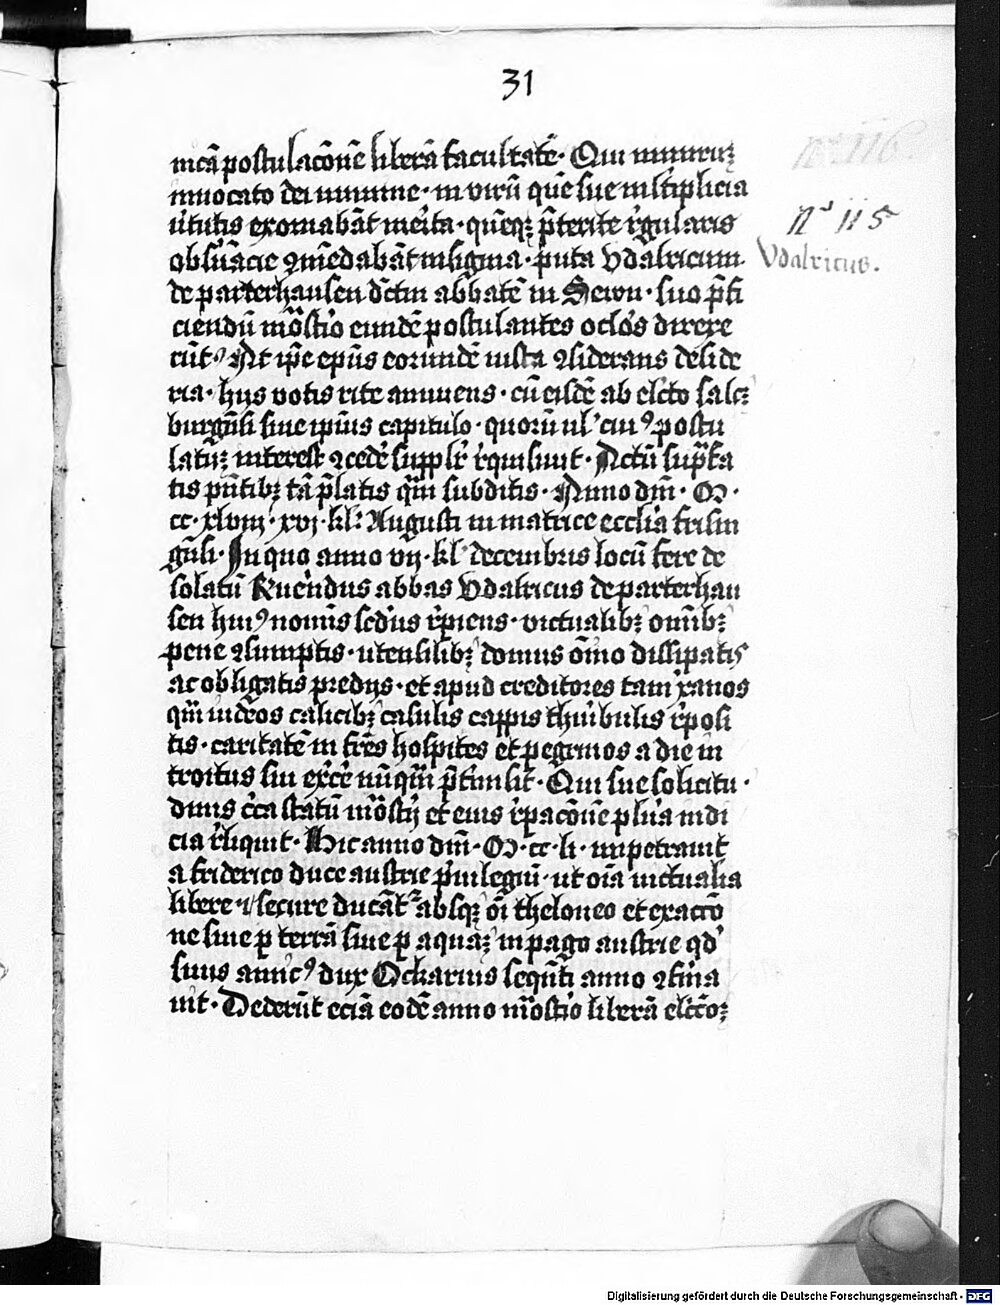 31
mcā postulacōnē liberā facultatē · Qui nimiruʒ
invocato dei numine · in virū quē sue mltiplicia
ũtutis exornabāt mẽita · quēqʒ p̄terite r̃gularis
obsũācie ꝯmēdabāt insignia · puta Vdalricum
N° 116
N° 115
Vdalricus.
de parterhausen d̄ctm abbatē in Sewn · suo p̄fi
ciendū mōst̃io eundē postulantes oclōs direxe
rūt · At ip̄e ep̄us eorundē iusta ꝯsiderans deside
ria · hijs votis rite annuens · cū eisdē ab elc̄to salcʒ
burgn̄si siue ip̄ius capitulo · quorū ul' cui⁹ postu
latū interest ꝯcedẽ supplr̄ r̃quisiuit · Actū sup̄sc̄a
tis pn̄tibʒ tā p̄latis qm̄ subditis · Anno dm̄ · M ·
cc · xlviij · xvj · kl' Augusti in matrice ecclīa frisin
gn̄si · In quo anno vij · kl' decembris locū fere de
solatū Ruẽndus abbas Vdalricus de parterhau
sen hui⁹ nomīs scd̄us r̃piens · victualibʒ om̄ibʒ
pene ꝯsumptis · utensilibʒ domus om̄no dissipatis
ac obligatis predijs · et apud creditores tam xp̄anos
qm̄ iudeos calicibʒ casulis cappis thuribulis r̃posi
tis · caritatē in fr̄es hospites et pegrinos a die in
troitus sui ex̃cẽ nūqm̄ p̄tmisit · Qui sue solicitu
dinis c̃ca statū mōst̃ij et eius r̃pacōnē plĩa indi
cia r̃liquit · Hic anno dm̄ · M · cc · li · impetrauit
a friderico duce austrie p̃uilegiū · ut oīa uictualia
libere ⁊ secure ducāt᷑ absqʒ oī theloneo et exactō
ne siue ꝑ terrā siue ꝑ aquaʒ in pago austrie qd'
suus amic⁹ dux Ockarius seqn̄ti anno ꝯfirma
uit · Dederūt eciā eodē anno mōst̃io liberā elcc̄oʒ
Digitalisierung gefördert durch die Deutsche Forschungsgemeinschaft - DFG